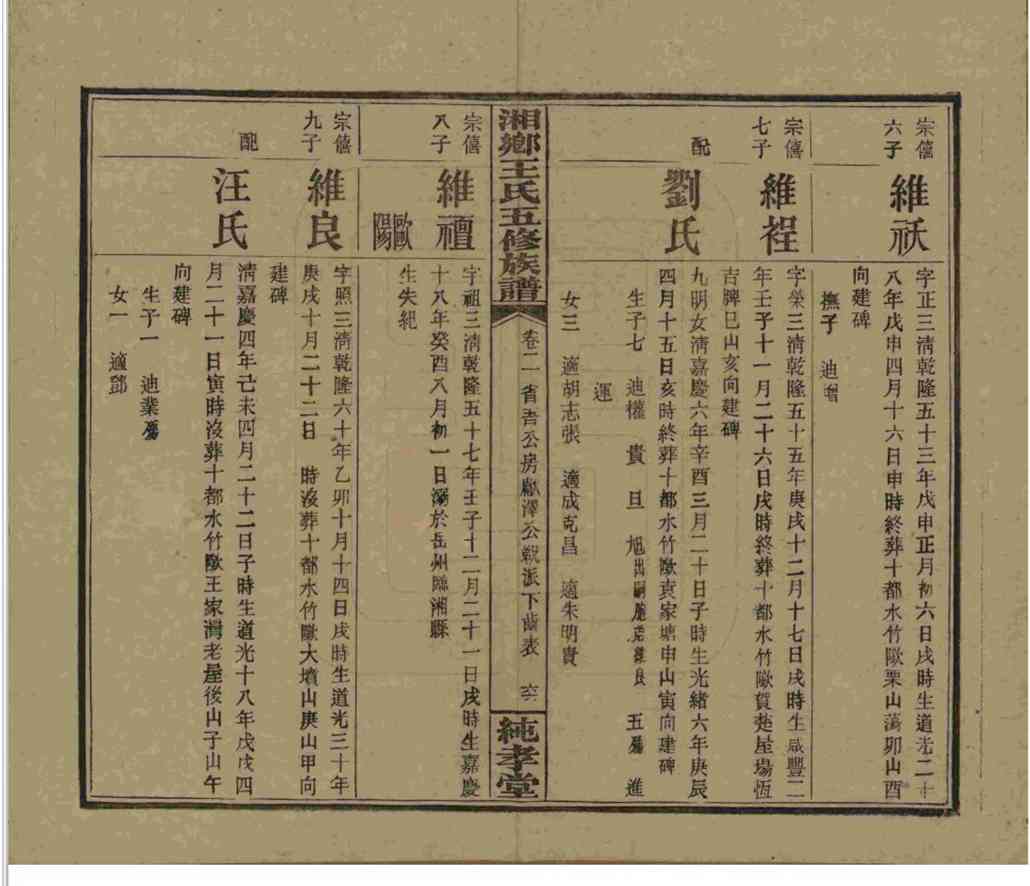 宗僖
六子
維祆
字正三清乾隆五十三年戊申正月初六日戌時生道光二十
八年戊申四月十六日申時終葬十都水竹歐栗山蕩卯山酉
向建碑
撫子 迪增
宗僖
七子
維裎
字榮三清乾隆五十五年庚戌十二月十七日戌時生咸豐二
年壬子十一月二十六日戌時終葬十都水竹歐賀楚屋場恆
吉牌巳山亥向建碑
配
劉氏
九明女清嘉慶六年辛酉三月二十日子時生光緒六年庚辰
四月十五日亥時終葬十都水竹歐袁家塘申山寅向建碑
生子七 迪權 貴 旦 旭出嗣 五 進
運
女三 適胡志張 適成克昌 適朱明貴
湘鄉王氏五修族譜
卷二 省吾公房 澤公 派下齒表
純孝堂
宗僖
八子
維禃
字祖三清乾隆五十七年壬子十二月二十一日戌時生嘉慶
十八年癸酉八月初一日溺於岳州臨湘縣
歐陽
生失紀
宗僖
九子
維良
字照三清乾隆六十年乙卯十月十四日戌時生道光三十年
庚戌十月二十二日 時沒葬十都水竹歐大墳山庚山甲向
建碑
配
汪氏
清嘉慶四年己未四月二十二日子時生道光十八年戊戌四
月二十一日寅時沒葬十都水竹歐王家灣老屋後山子山午
向建碑
生子一 迪業
女一 適鄧